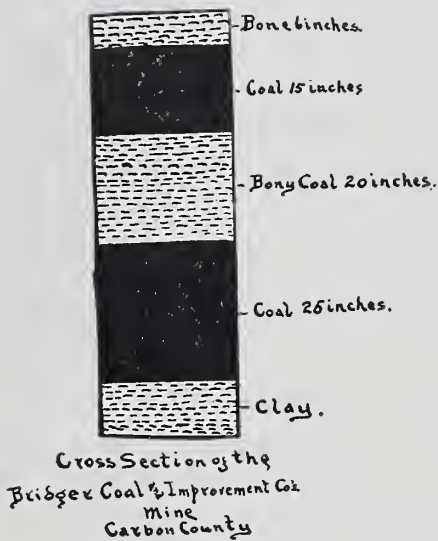 Bone 6 inches.
Coal 15 inches
Bony Coal 20 inches.
Coal 25 inches.
Clay.
Cross Section of the
Bridger Coal & Improvement Co's
Mine
Carbon County